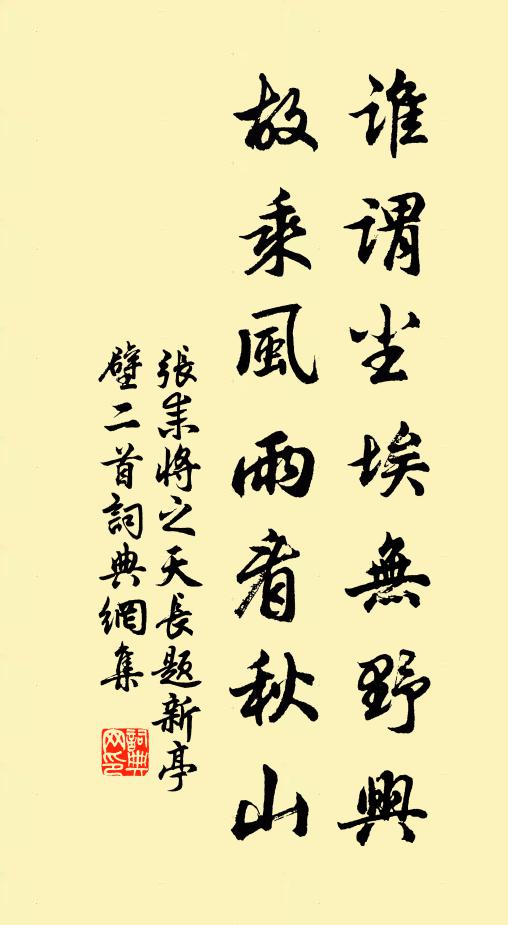 誰謂尘埃無野興
故乘風雨看秋山
張耒將之天長題新亭
壁二首詞典網集
詞典
网印